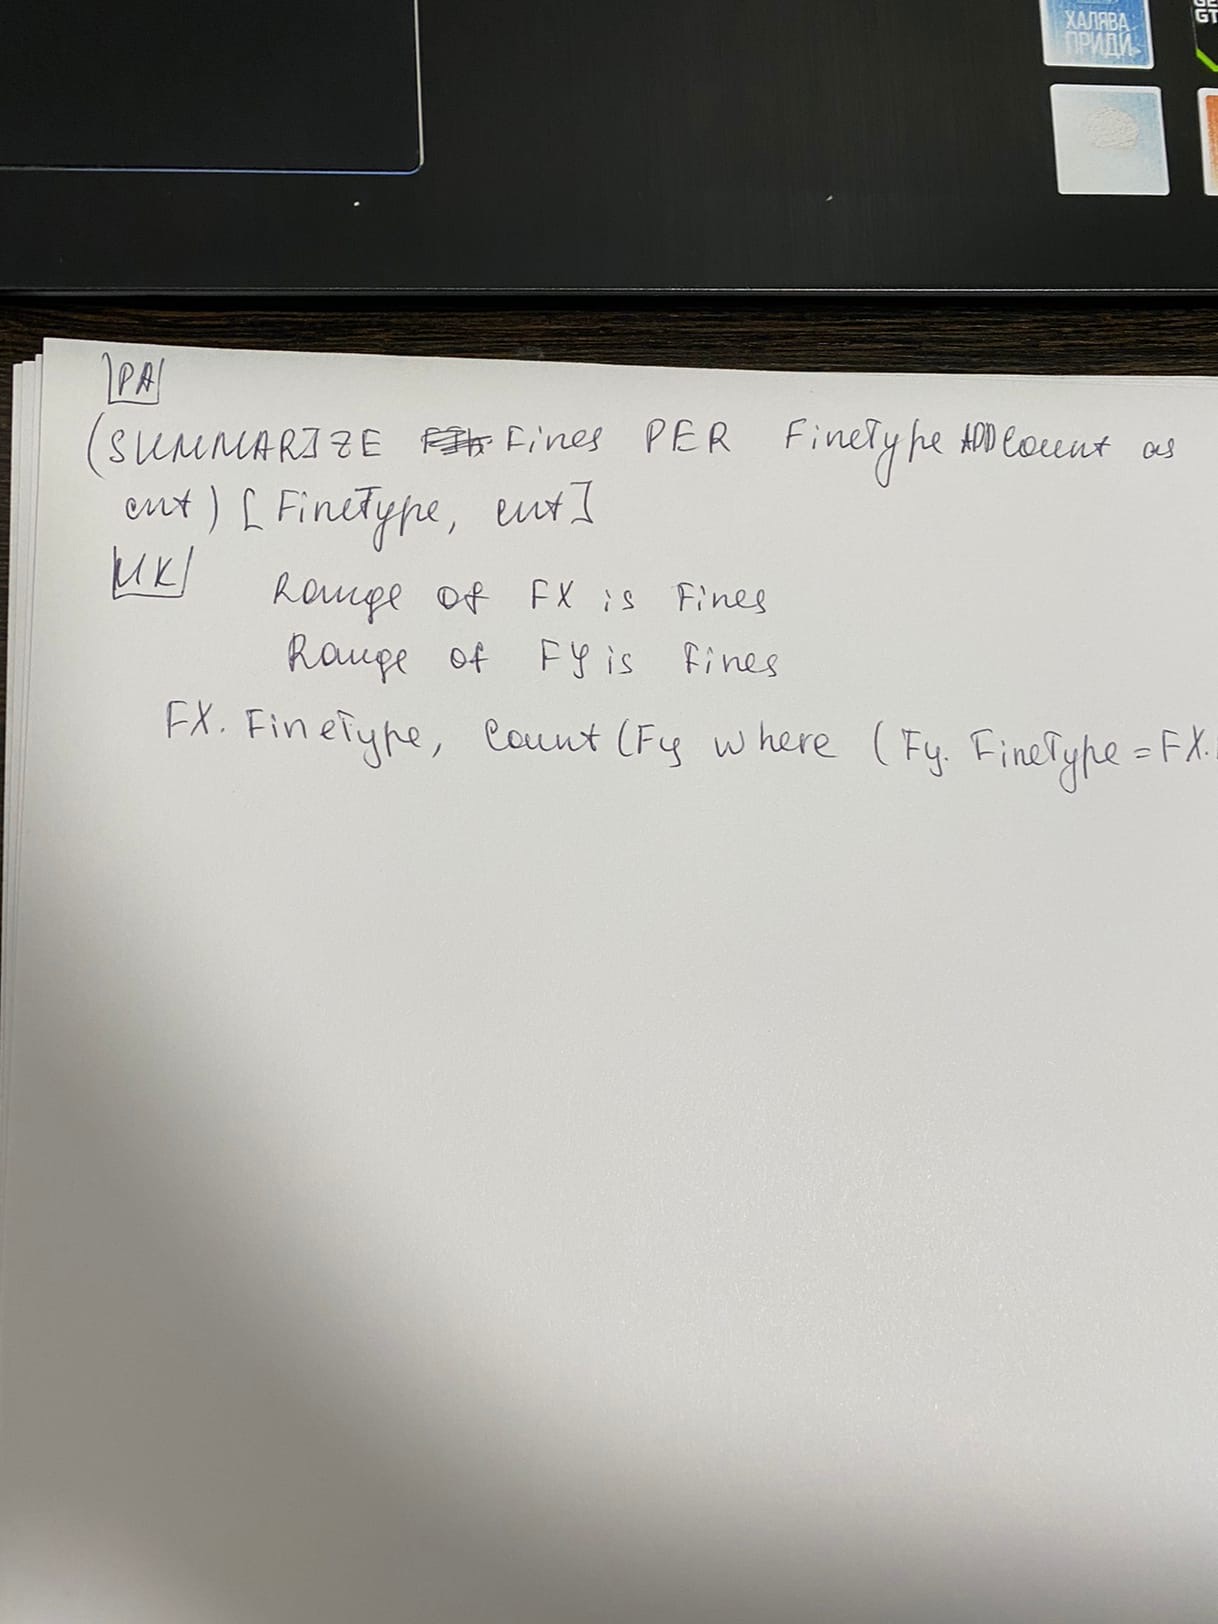 ХАЛЯВА
ПРИДИ
GT
РА
(SUMMARIZE Fines PER FineType ADD Count as
cnt) [FineType, cnt]
ИК
Range of FX is Fines
Range of FY is Fines
FX. FineType, Count (Fy where (Fy. FineType = FX.